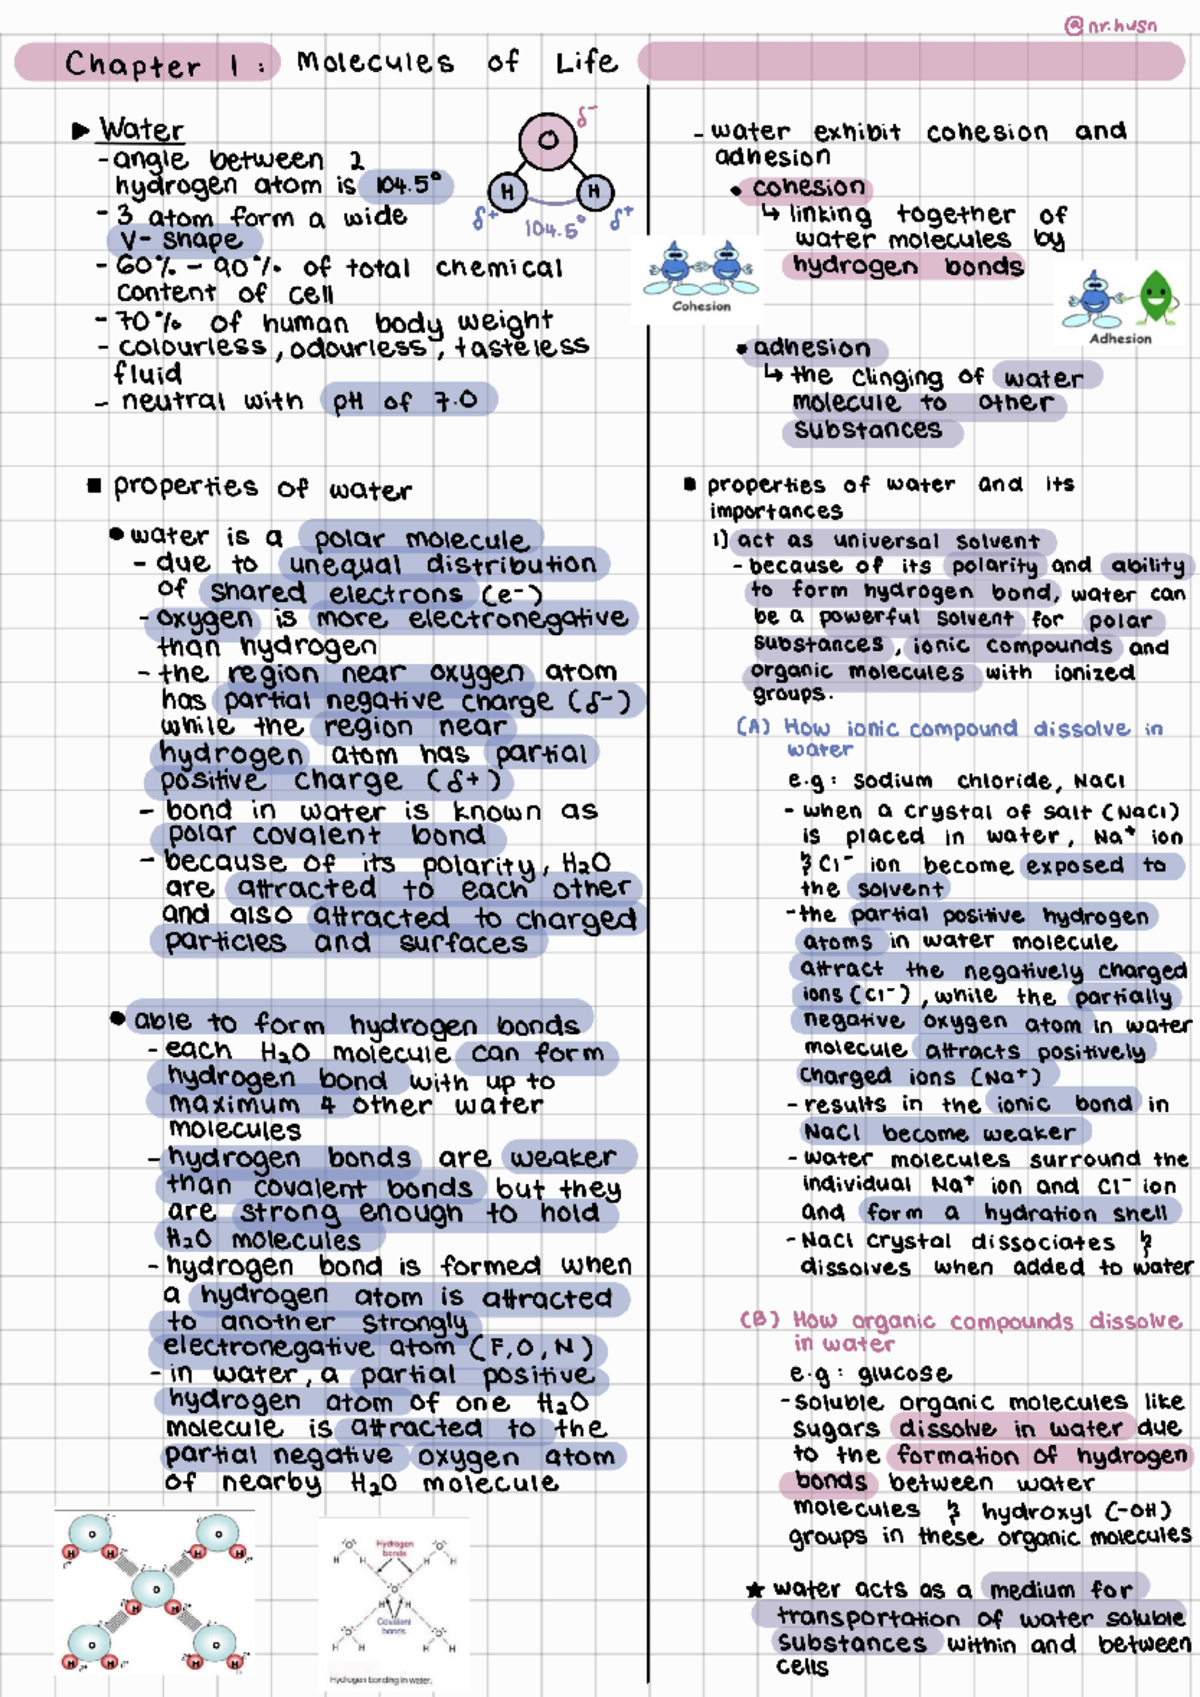 @nr.husn
Chapter 1: Molecules of Life
▶ Water
- angle between 2
hydrogen atom is 104.5°
- 3 atom form a wide
V- shape
- 60% - 90% of total chemical
content of cell
- 70% of human body weight
- colourless, odourless, tasteless
fluid
- neutral with pH of 7.0
O δ-
H H
δ+ 104.5° δ+
■ properties of water
• water is a polar molecule
- due to unequal distribution
of shared electrons (e-)
- oxygen is more electronegative
than hydrogen
- the region near oxygen atom
has partial negative charge (δ-)
while the region near
hydrogen atom has partial
positive charge (δ+)
- bond in water is known as
polar covalent bond
- because of its polarity, H₂O
are attracted to each other
and also attracted to charged
particles and surfaces
• able to form hydrogen bonds
- each H₂O molecule can form
hydrogen bond with up to
maximum 4 other water
molecules
- hydrogen bonds are weaker
than covalent bonds but they
are strong enough to hold
H₂O molecules
- hydrogen bond is formed when
a hydrogen atom is attracted
to another strongly
electronegative atom (F,O,N)
- in water, a partial positive
hydrogen atom of one H₂O
molecule is attracted to the
partial negative oxygen atom
of nearby H₂O molecule
O O
H H H H
O
H H
O O
H H H H
Hydrogen
bonds
Covalent
bonds
Hydrogen bonding in water.
- water exhibit cohesion and
adhesion
• cohesion
↳ linking together of
water molecules by
hydrogen bonds
Cohesion
Adhesion
• adhesion
↳ the clinging of water
molecule to other
substances
■ properties of water and its
importances
1) act as universal solvent
- because of its polarity and ability
to form hydrogen bond, water can
be a powerful solvent for polar
substances, ionic compounds and
organic molecules with ionized
groups.
(A) How ionic compound dissolve in
water
e.g: sodium chloride, NaCl
- when a crystal of salt (NaCl)
is placed in water, Na⁺ ion
& Cl⁻ ion become exposed to
the solvent
- the partial positive hydrogen
atoms in water molecule
attract the negatively charged
ions (Cl⁻), while the partially
negative oxygen atom in water
molecule attracts positively
charged ions (Na⁺)
- results in the ionic bond in
NaCl become weaker
- water molecules surround the
individual Na⁺ ion and Cl⁻ ion
and form a hydration shell
- NaCl crystal dissociates &
dissolves when added to water
(B) How organic compounds dissolve
in water
e.g: glucose
- soluble organic molecules like
sugars dissolve in water due
to the formation of hydrogen
bonds between water
molecules & hydroxyl (-OH)
groups in these organic molecules
★ water acts as a medium for
transportation of water soluble
substances within and between
cells